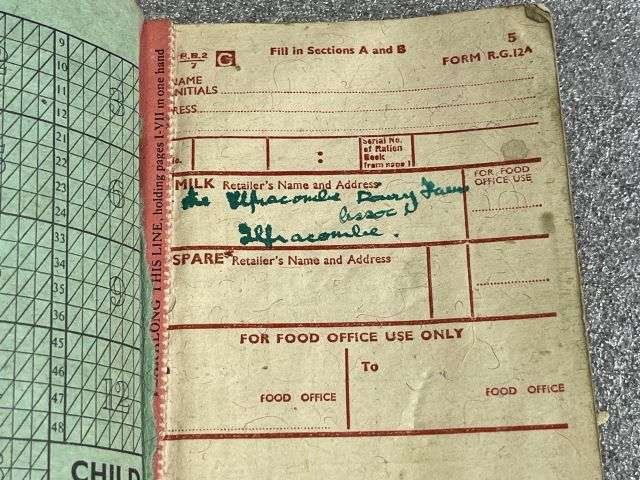 9
10
11
12
21
22
23
24
33
34
35
36
45
46
47
48
3
6
9
12
CHILD
ALONG THIS LINE, holding pages I-VII in one hand
R.B.2
7
G
Fill in Sections A and B
5
FORM R.G.12A
NAME
INITIALS
Serial No.
of Ration
Book
from page 1
:
MILK Retailer's Name and Address
FOR FOOD
OFFICE USE
The Ilfracombe Dairy Farm
Assoc
Ilfracombe.
SPARE* Retailer's Name and Address
FOR FOOD OFFICE USE ONLY
To
FOOD OFFICE
FOOD OFFICE